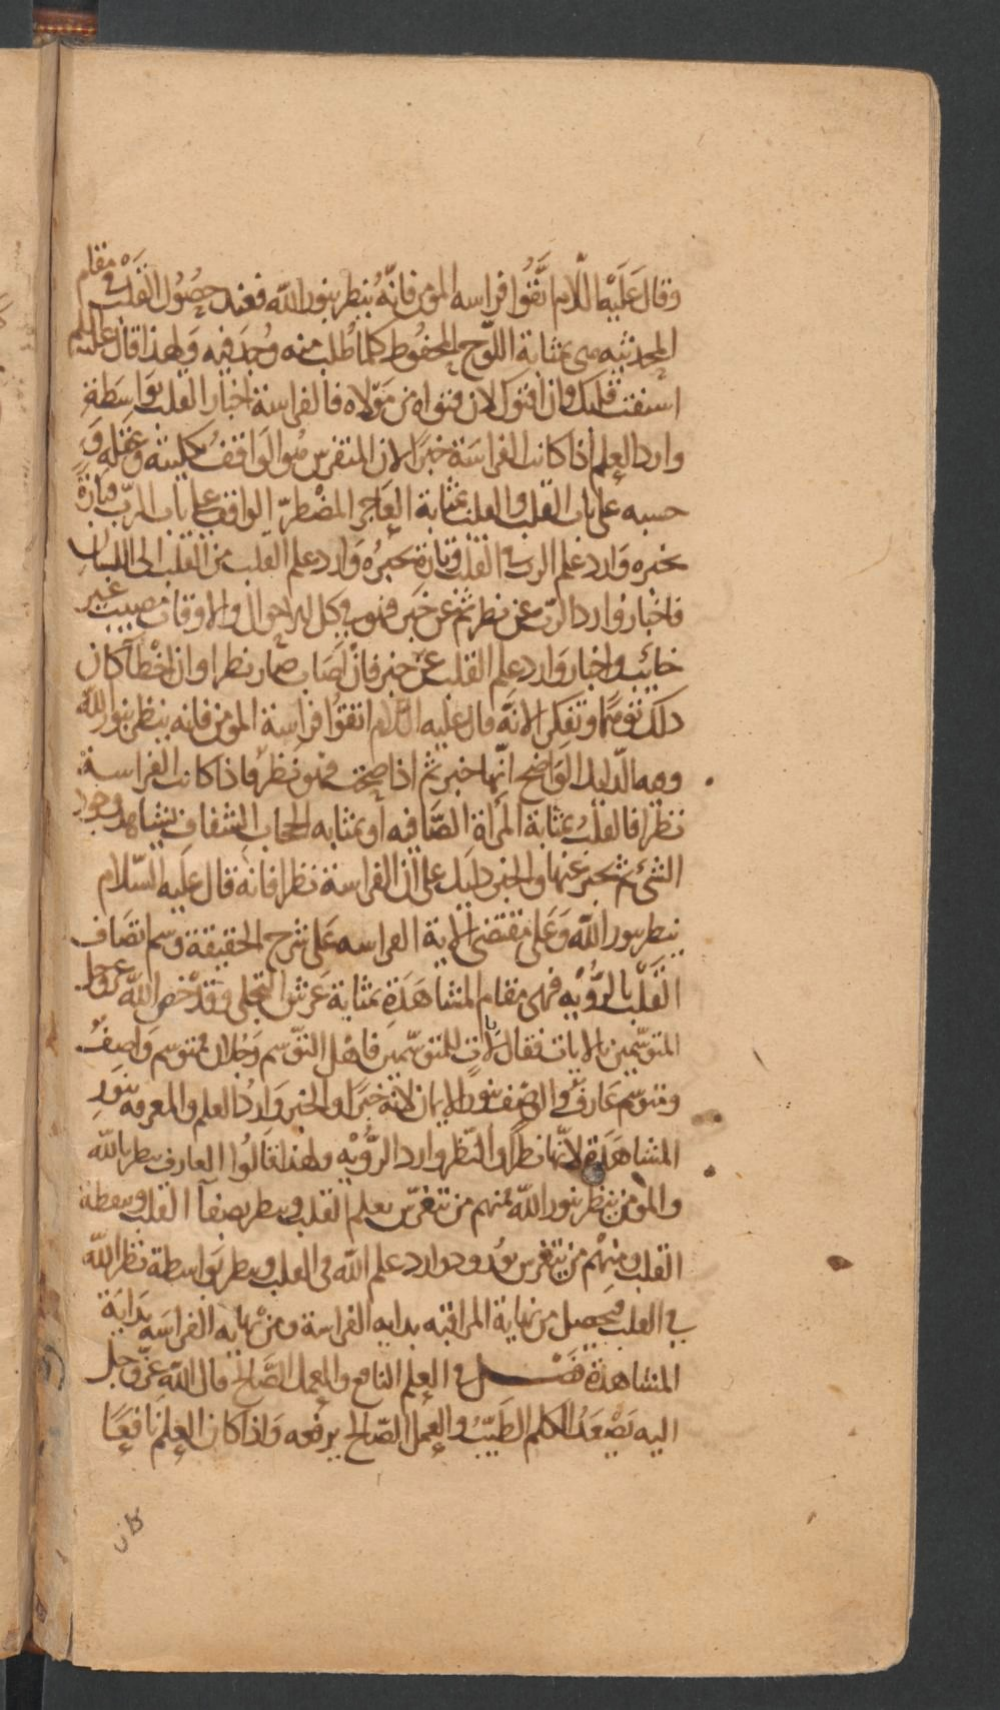 وقال عليه السلام اتقوا فراسة المؤمن فانه ينظر بنور الله فعند حصول القلب في مقام
المحدثيه هي بمثابة اللوح المحفوظ كلما طلب منه وجد فيه ولهذا قال عليه السلم
استفت قلبك وان افتوك لان فتواه من مولاه فالفراسة اخبار القلب بواسطة
وارد العلم اذا كانت الفراسة خبرا لان المتفرس هو الواقف بكليته وعقله و
حسه على باب القلب والقلب بمثابة العاجز المضطر الواقف على باب الرب فتارة
يخبره وارد علم الرب في القلب وتارة يخبره وارد علم القلب من القلب الى اللسان
فاخبار وارد الرب عن نظر ثم عن خبر فهو في كل الاحوال والاوقات مصيب غير
خائب واخبار وارد علم القلب عن خبر فان اصاب صار نظرا وان اخطا كان
ذلك توهما وتفكرا لانه قال عليه السلام اتقوا فراسة المؤمن فانه ينظر بنور الله
وهه الدليل الواضح انها خبر ثم اذا صحت فهو نظر فاذا كانت الفراسة
نظرا فالقلب بمثابة المرآة الصافيه او بمثابه الحجاب الشفاف يشاهد وجود
الشئ ثم يخبر عنها والخبر دليل على ان الفراسة نظر فانه قال عليه السلام
ينظر بنور الله وعلى مقتضى الاية الفراسه على شرح الحقيقة وسم اتصاف
القلب بالرؤيه فهي مقام المشاهدة بمثابة عرش التجلي وقد خص الله عز وجل
المتوسمين بالايات فقال لايات للمتوسمين فاهل التوسم رجلان متوسم واصف
ومتوسم عارف والوصف بنور الايمان لانه خبر والخبر وارد العلم والمعرفه بنور
المشاهدة لانها نظر والنظر وارد الرؤيه ولهذا قالوا العارف ينظر بالله
والمؤمن ينظر بنور الله فمنهم من يتفرس بعلم القلب وينظر بصفآ القلب ويقظة
القلب ومنهم من يتفرس بورود وارد علم الله في القلب وينظر بواسطة نظر الله
في القلب فيحصل من نهاية المراقبه بدايه الفراسة ومن نهايه الفراسه بداية
المشاهدة فصل في العلم النافع والعمل الصالح قال الله عز وجل
اليه يصعد الكلم الطيب والعمل الصالح يرفعه واذا كان العلم نافعا
كان